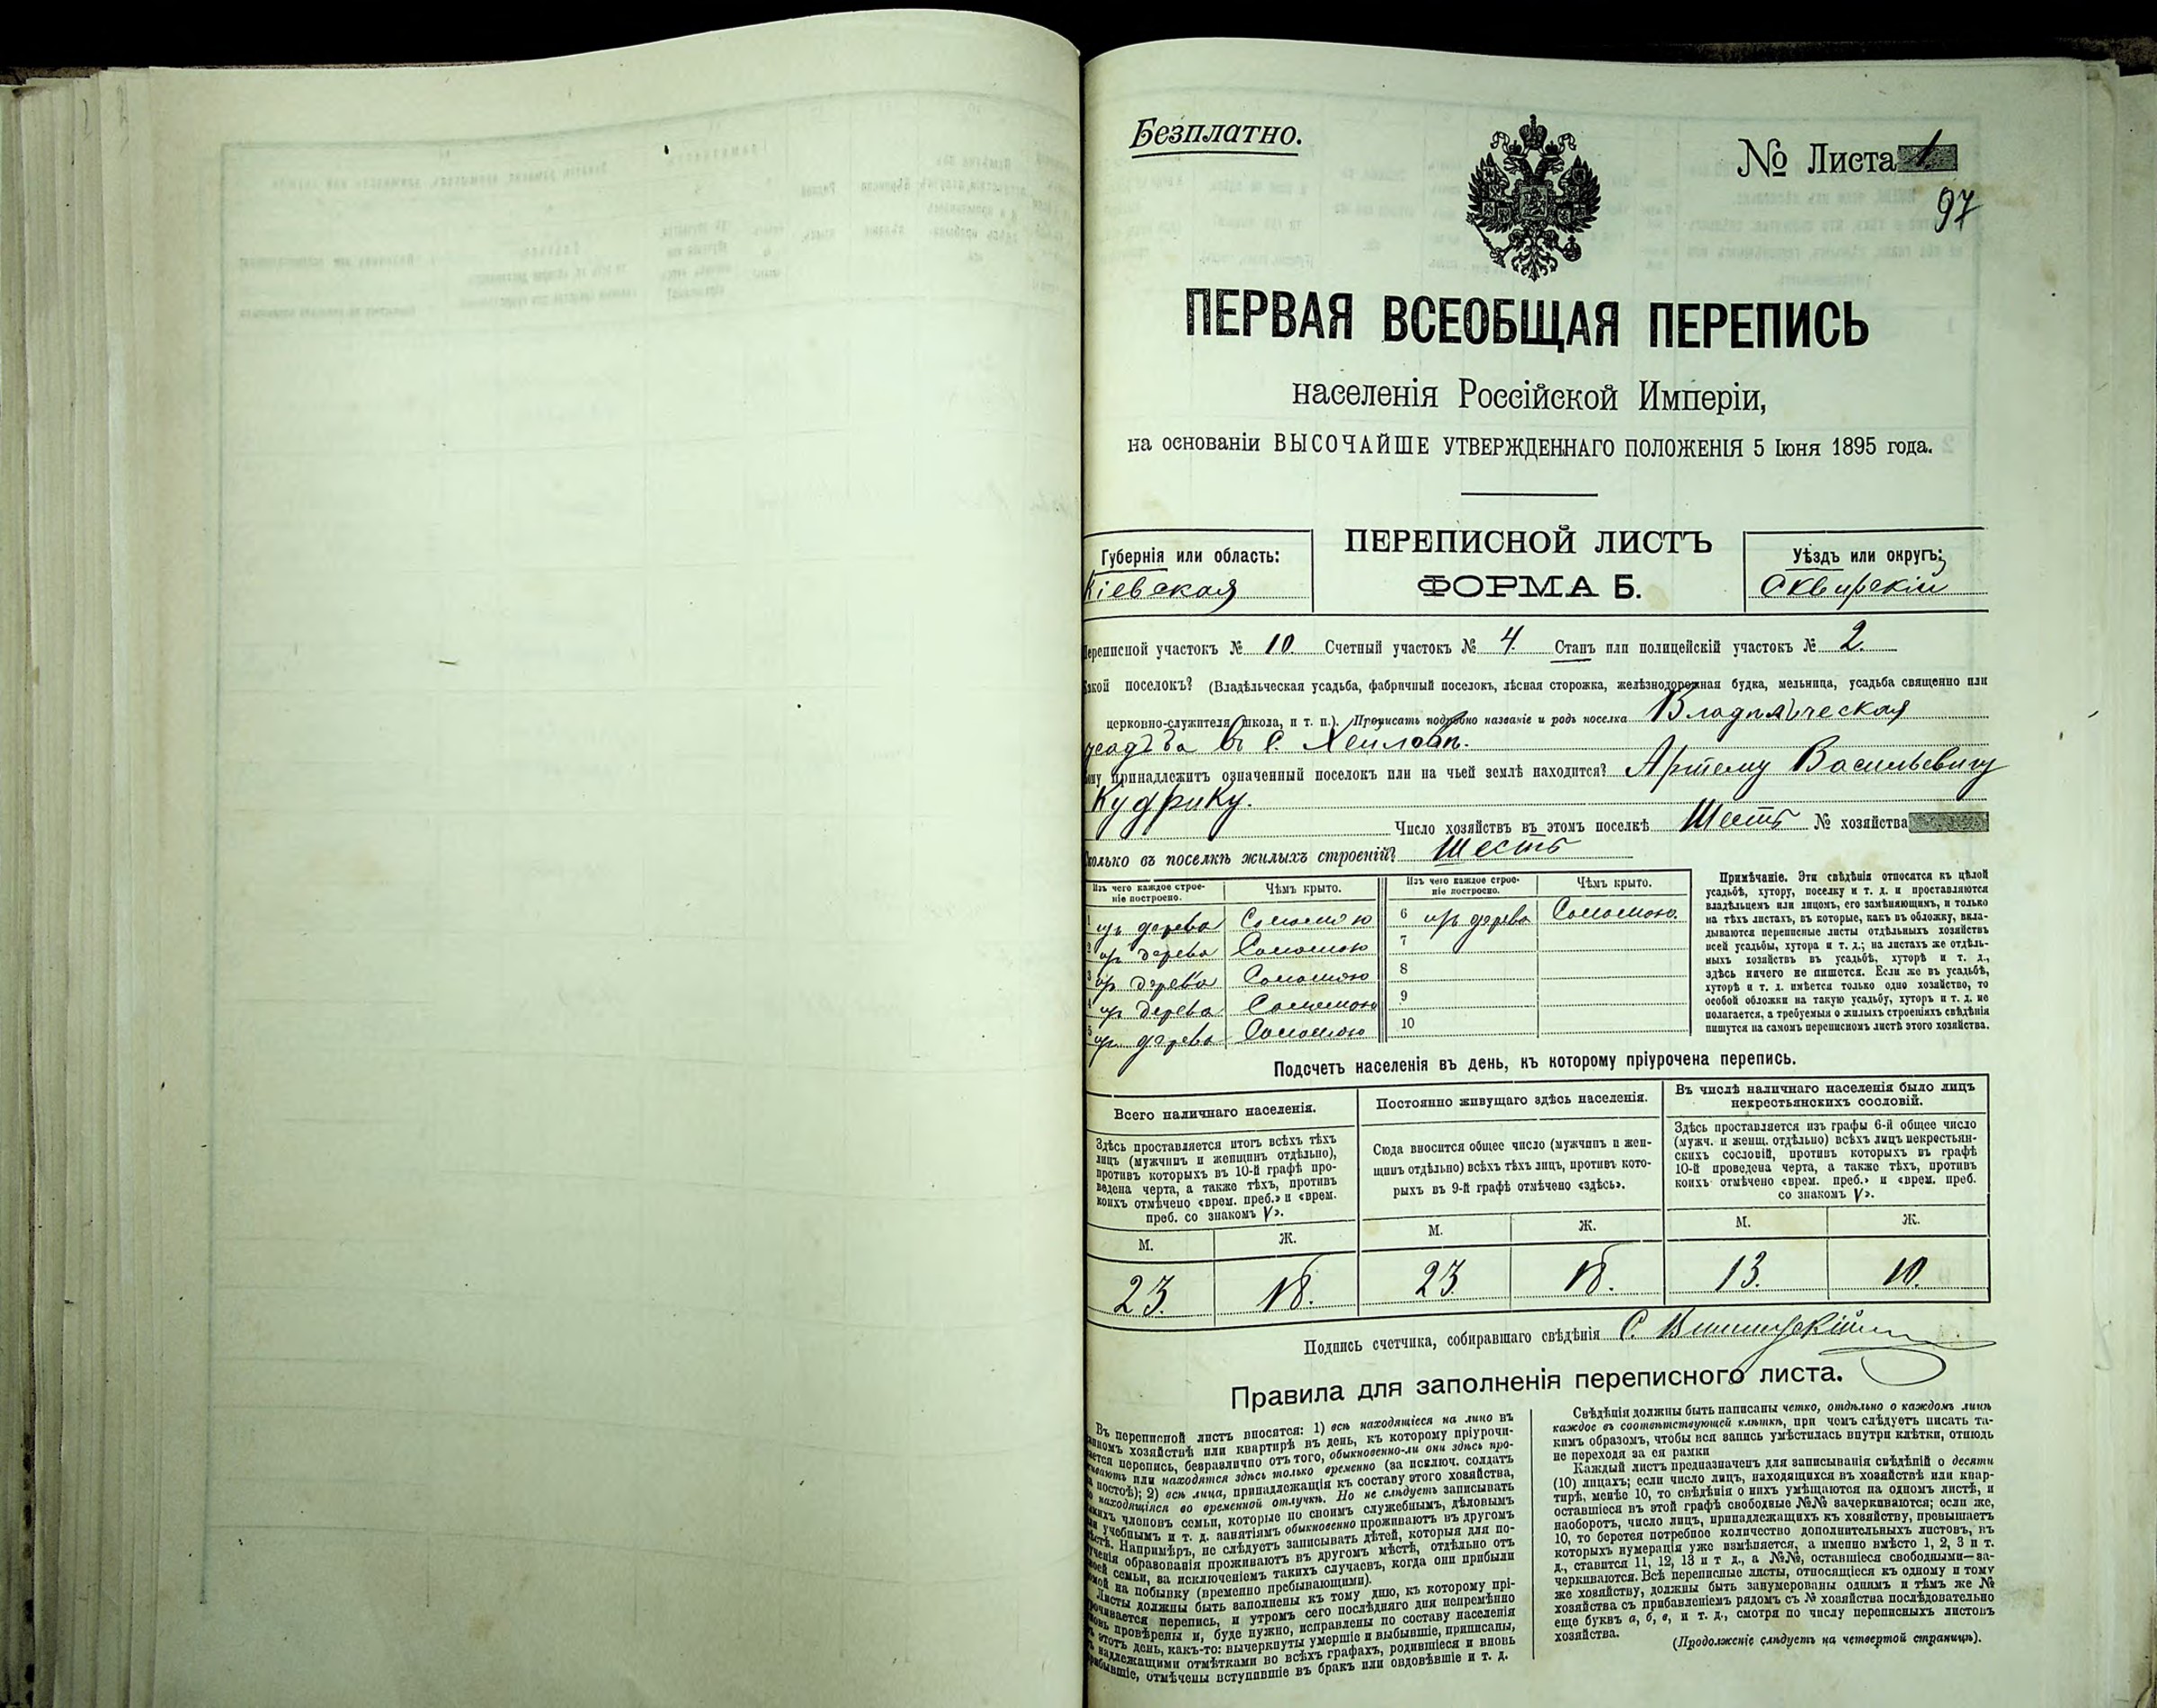 Безплатно.
№ Листа 1
97
ПЕРВАЯ ВСЕОБЩАЯ ПЕРЕПИСЬ
населенія Россійской Имперіи,
на основаніи ВЫСОЧАЙШЕ УТВЕРЖДЕННАГО ПОЛОЖЕНІЯ 5 Іюня 1895 года.
Губернія или область:
Кіевская
ПЕРЕПИСНОЙ ЛИСТЪ
ФОРМА Б.
Уѣздъ или округъ:
Сквирскій
Переписной участокъ № 10. Счетный участокъ № 4. Станъ или полицейскій участокъ № 2.
Какой поселокъ? (Владѣльческая усадьба, фабричный поселокъ, лѣсная сторожка, желѣзнодорожная будка, мельница, усадьба священно или
церковно-служителя школа, и т. п.). Прописать подробно названіе и родъ поселка Владѣльческая
усадьба въ с.
Кому принадлежитъ означенный поселокъ или на чьей землѣ находится? Артему Васильевичу
Кудрику.
Число хозяйствъ въ этомъ поселкѣ Шесть № хозяйства
Сколько въ поселкѣ жилыхъ строеній? Шесть
Изъ чего каждое строе-
ніе построено.
Чѣмъ крыто.
Изъ чего каждое строе-
ніе построено.
Чѣмъ крыто.
1 изъ дерева Соломою
2 изъ дерева Соломою
3 изъ дерева Соломою
4 изъ дерева Соломою
5 изъ дерева Соломою
6 изъ дерева Соломою.
7
8
9
10
Примѣчаніе. Эти свѣдѣнія относятся къ цѣлой
усадьбѣ, хутору, поселку и т. д. и проставляются
владѣльцемъ или лицомъ, его замѣняющимъ, и только
на тѣхъ листахъ, въ которые, какъ въ обложку, вкла-
дываются переписные листы отдѣльныхъ хозяйствъ
всей усадьбы, хутора и т. д.; на листахъ же отдѣль-
ныхъ хозяйствъ въ усадьбѣ, хуторѣ и т. д.,
здѣсь ничего не пишется. Если же въ усадьбѣ,
хуторѣ и т. д. имѣется только одно хозяйство, то
особой обложки на такую усадьбу, хуторъ и т. д. не
полагается, а требуемыя о жилыхъ строеніяхъ свѣдѣнія
пишутся на самомъ переписномъ листѣ этого хозяйства.
Подсчетъ населенія въ день, къ которому пріурочена перепись.
Всего наличнаго населенія.
Здѣсь проставляется итогъ всѣхъ тѣхъ
лицъ (мужчинъ и женщинъ отдѣльно),
противъ которыхъ въ 10-й графѣ про-
ведена черта, а также тѣхъ, противъ
коихъ отмѣчено «врем. преб.» и «врем.
преб. со знакомъ V».
М. Ж.
23. 18.
Постоянно живущаго здѣсь населенія.
Сюда вносится общее число (мужчинъ и жен-
щинъ отдѣльно) всѣхъ тѣхъ лицъ, противъ кото-
рыхъ въ 9-й графѣ отмѣчено «здѣсь».
М. Ж.
23. 18.
Въ числѣ наличнаго населенія было лицъ
некрестьянскихъ сословій.
Здѣсь проставляется изъ графы 6-й общее число
(мужч. и женщ. отдѣльно) всѣхъ лицъ некрестьян-
скихъ сословій, противъ которыхъ въ графѣ
10-й проведена черта, а также тѣхъ, противъ
коихъ отмѣчено «врем. преб.» и «врем. преб.
со знакомъ V».
М. Ж.
13. 10.
Подпись счетчика, собиравшаго свѣдѣнія С.
Правила для заполненія переписного листа.
Въ переписной листъ вносятся: 1) всѣ находящіеся на лицо въ
данномъ хозяйствѣ или квартирѣ въ день, къ которому пріурочи-
вается перепись, безразлично отъ того, обыкновенно-ли они здѣсь про-
живаютъ или находятся здѣсь только временно (за исключ. солдатъ
на постоѣ); 2) всѣ лица, принадлежащія къ составу этого хозяйства,
но находящіяся во временной отлучкѣ. Но не слѣдуетъ записывать
такихъ членовъ семьи, которые по своимъ служебнымъ, дѣловымъ
или учебнымъ и т. д. занятіямъ обыкновенно проживаютъ въ другомъ
мѣстѣ. Напримѣръ, не слѣдуетъ записывать дѣтей, которыя для по-
лученія образованія проживаютъ въ другомъ мѣстѣ, отдѣльно отъ
своей семьи, за исключеніемъ такихъ случаевъ, когда они прибыли
домой на побывку (временно пребывающими).
Листы должны быть заполнены къ тому дню, къ которому прі-
урочивается перепись, и утромъ сего послѣдняго дня непремѣнно
вновь провѣрены и, буде нужно, исправлены по составу населенія
въ этотъ день, какъ-то: вычеркнуты умершіе и выбывшіе, приписаны,
съ надлежащими отмѣтками во всѣхъ графахъ, родившіеся и вновь
прибывшіе, отмѣчены вступившіе въ бракъ или овдовѣвшіе и т. д.
Свѣдѣнія должны быть написаны четко, отдѣльно о каждомъ лицѣ
каждое въ соотвѣтствующей клѣткѣ, при чемъ слѣдуетъ писать та-
кимъ образомъ, чтобы вся запись умѣстилась внутри клѣтки, отнюдь
не переходя за ея рамки
Каждый листъ предназначенъ для записыванія свѣдѣній о десяти
(10) лицахъ; если число лицъ, находящихся въ хозяйствѣ или квар-
тирѣ, менѣе 10, то свѣдѣнія о нихъ умѣщаются на одномъ листѣ, и
оставшіеся въ этой графѣ свободные №№ зачеркиваются; если же,
наоборотъ, число лицъ, принадлежащихъ къ хозяйству, превышаетъ
10, то берется потребное количество дополнительныхъ листовъ, въ
которыхъ нумерація уже измѣняется, а именно вмѣсто 1, 2, 3 и т.
д., ставится 11, 12, 13 и т д., а №№, оставшіеся свободными—за-
черкиваются. Всѣ переписные листы, относящіеся къ одному и тому
же хозяйству, должны быть занумерованы однимъ и тѣмъ же №
хозяйства съ прибавленіемъ рядомъ съ № хозяйства послѣдовательно
еще буквъ а, б, в, и т. д., смотря по числу переписныхъ листовъ
хозяйства.
(Продолженіе слѣдуетъ на четвертой страницѣ).